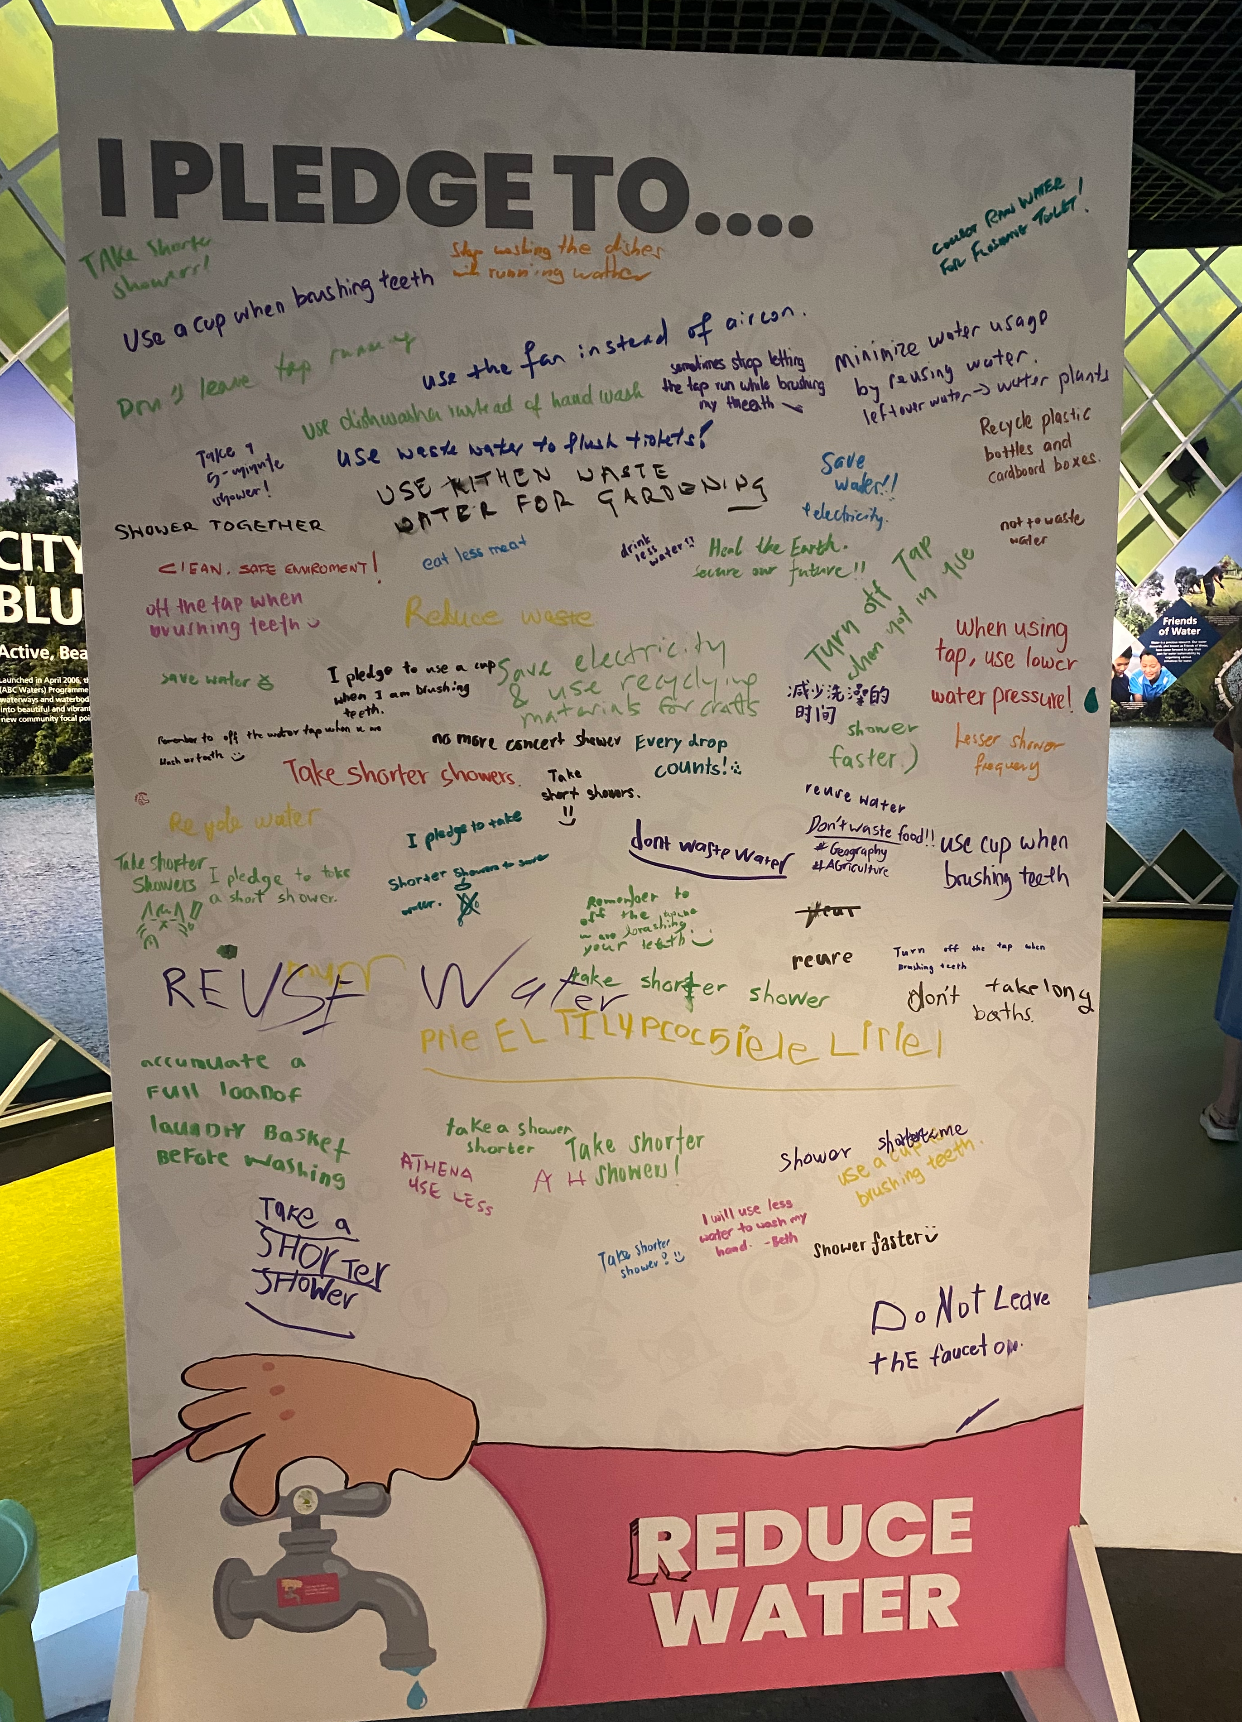 I PLEDGE TO....
COLLECT RAIN WATER
FOR FLUSHING TOILET!
TAKE Shorter
showerr!
Stop washing the dishes
with running wather
Use a cup when brushing teeth
Don't leave tap running
use the fan instead of aircon.
sometimes stop letting
the tap run while brushing
my theeth
Minimize water usage
by reusing water.
leftover water → water plants
use dishwasher instead of hand wash
Recycle plastic
bottles and
cardboard boxes.
Take a
5-minute
shower!
use waste water to flush toilets!
USE KITHEN WASTE
WATER FOR GARDENING
Save
water!!
+electricity.
SHOWER TOGETHER
not to waste
water
CLEAN. SAFE ENVIROMENT!
eat less meat
drink
less
water!!
Heal the Earth.
Secure our future!!
Turn off Tap
when not in use
off the tap when
brushing teeth
Reduce waste
When using
tap, use lower
water pressure!
save water
I pledge to use a cup
when I am brushing
teeth.
Save electricity
& use recyclying
materials for crafts
减少洗澡的
时间
Remember to off the water tap when u are
no more concert shower
Every drop
counts!
shower
faster:)
Lesser shower
Take shorter showers.
Take
short showers.
Recycle water
I pledge to take
Shorter Showers to save
water.
dont waste water
reuse water
Don't waste food!!
# Geography
# AGriculture
use cup when
brushing teeth
Take shorter
Showers
I pledge to take
a short shower.
Remember to
off the
u are brushing
your teeth
reuse
Turn off the tap when
Brushing teeth
REUSE Water
take shorter shower
don't take long
baths.
accumulate a
FUll loanof
launDry Basket
BeFore washing
take a shower
shorter
Take shorter
showers!
ATHENA
USE LESS
A H
shower shorter time
use a cup
brushing teeth.
Take a
SHOrTer
SHOWer
I will use less
water to wash my
hand. -Beth
Take shorter
shower!
Shower faster
Do Not Leave
thE faucet on.
REDUCE
WATER
CITY
BLU
Active, Bea
Launched in April 2006, th
(ABC Waters) Programme
waterways and waterbod
into beautiful and vibran
new community focal poi
Friends
of Water